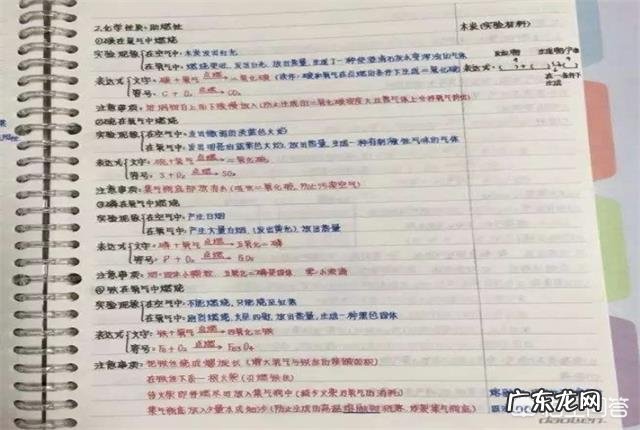 2.化学性质:助燃性
①碳在氧气中燃烧 木炭(实验材料)
实验现象 在空气中:木炭发出红光
在氧气中:燃烧更旺,发出白光,放出热量,生成了一种使澄清石灰水变浑浊的气体
表达式 文字:碳+氧气 点燃→ 二氧化碳 表达式:
符号:C + O₂ 点燃→ CO₂
注意事项:
②硫在氧气中燃烧
实验现象 在空气中:发出微弱的淡蓝色火焰
在氧气中:发出明亮的蓝紫色火焰,放出热量,生成一种有刺激性气味的气体
表达式 文字:硫+氧气 点燃→ 二氧化硫
符号:S + O₂ 点燃→ SO₂
注意事项:集气瓶底部放有水(吸收二氧化硫,防止污染空气)
③磷在氧气中燃烧
实验现象 在空气中:产生白烟
在氧气中:产生大量白烟,(发出黄光),放出热量
表达式 文字:磷+氧气 点燃→ 五氧化二磷
符号:P + O₂ 点燃→ P₂O₅
注意事项:烟:固体小颗粒 五氧化二磷是固体 雾:小液滴
④铁在氧气中燃烧
实验现象 在空气中:不能燃烧,只能烧至红热
在氧气中:剧烈燃烧,火星四射,放出热量,生成一种黑色固体
表达式 文字:铁+氧气 点燃→ 四氧化三铁
符号:Fe + O₂ 点燃→ Fe₃O₄
注意事项:把铁丝绕成螺旋状(增大氧气与铁丝的接触面积)
在铁丝下系一根火柴(引燃铁丝)
待火柴即将燃尽时放入集气瓶中(减少火柴对氧气的消耗)
集气瓶底放入少量水或细沙(防止生成的高温 炸裂集气瓶底)
广东龙网
daoben